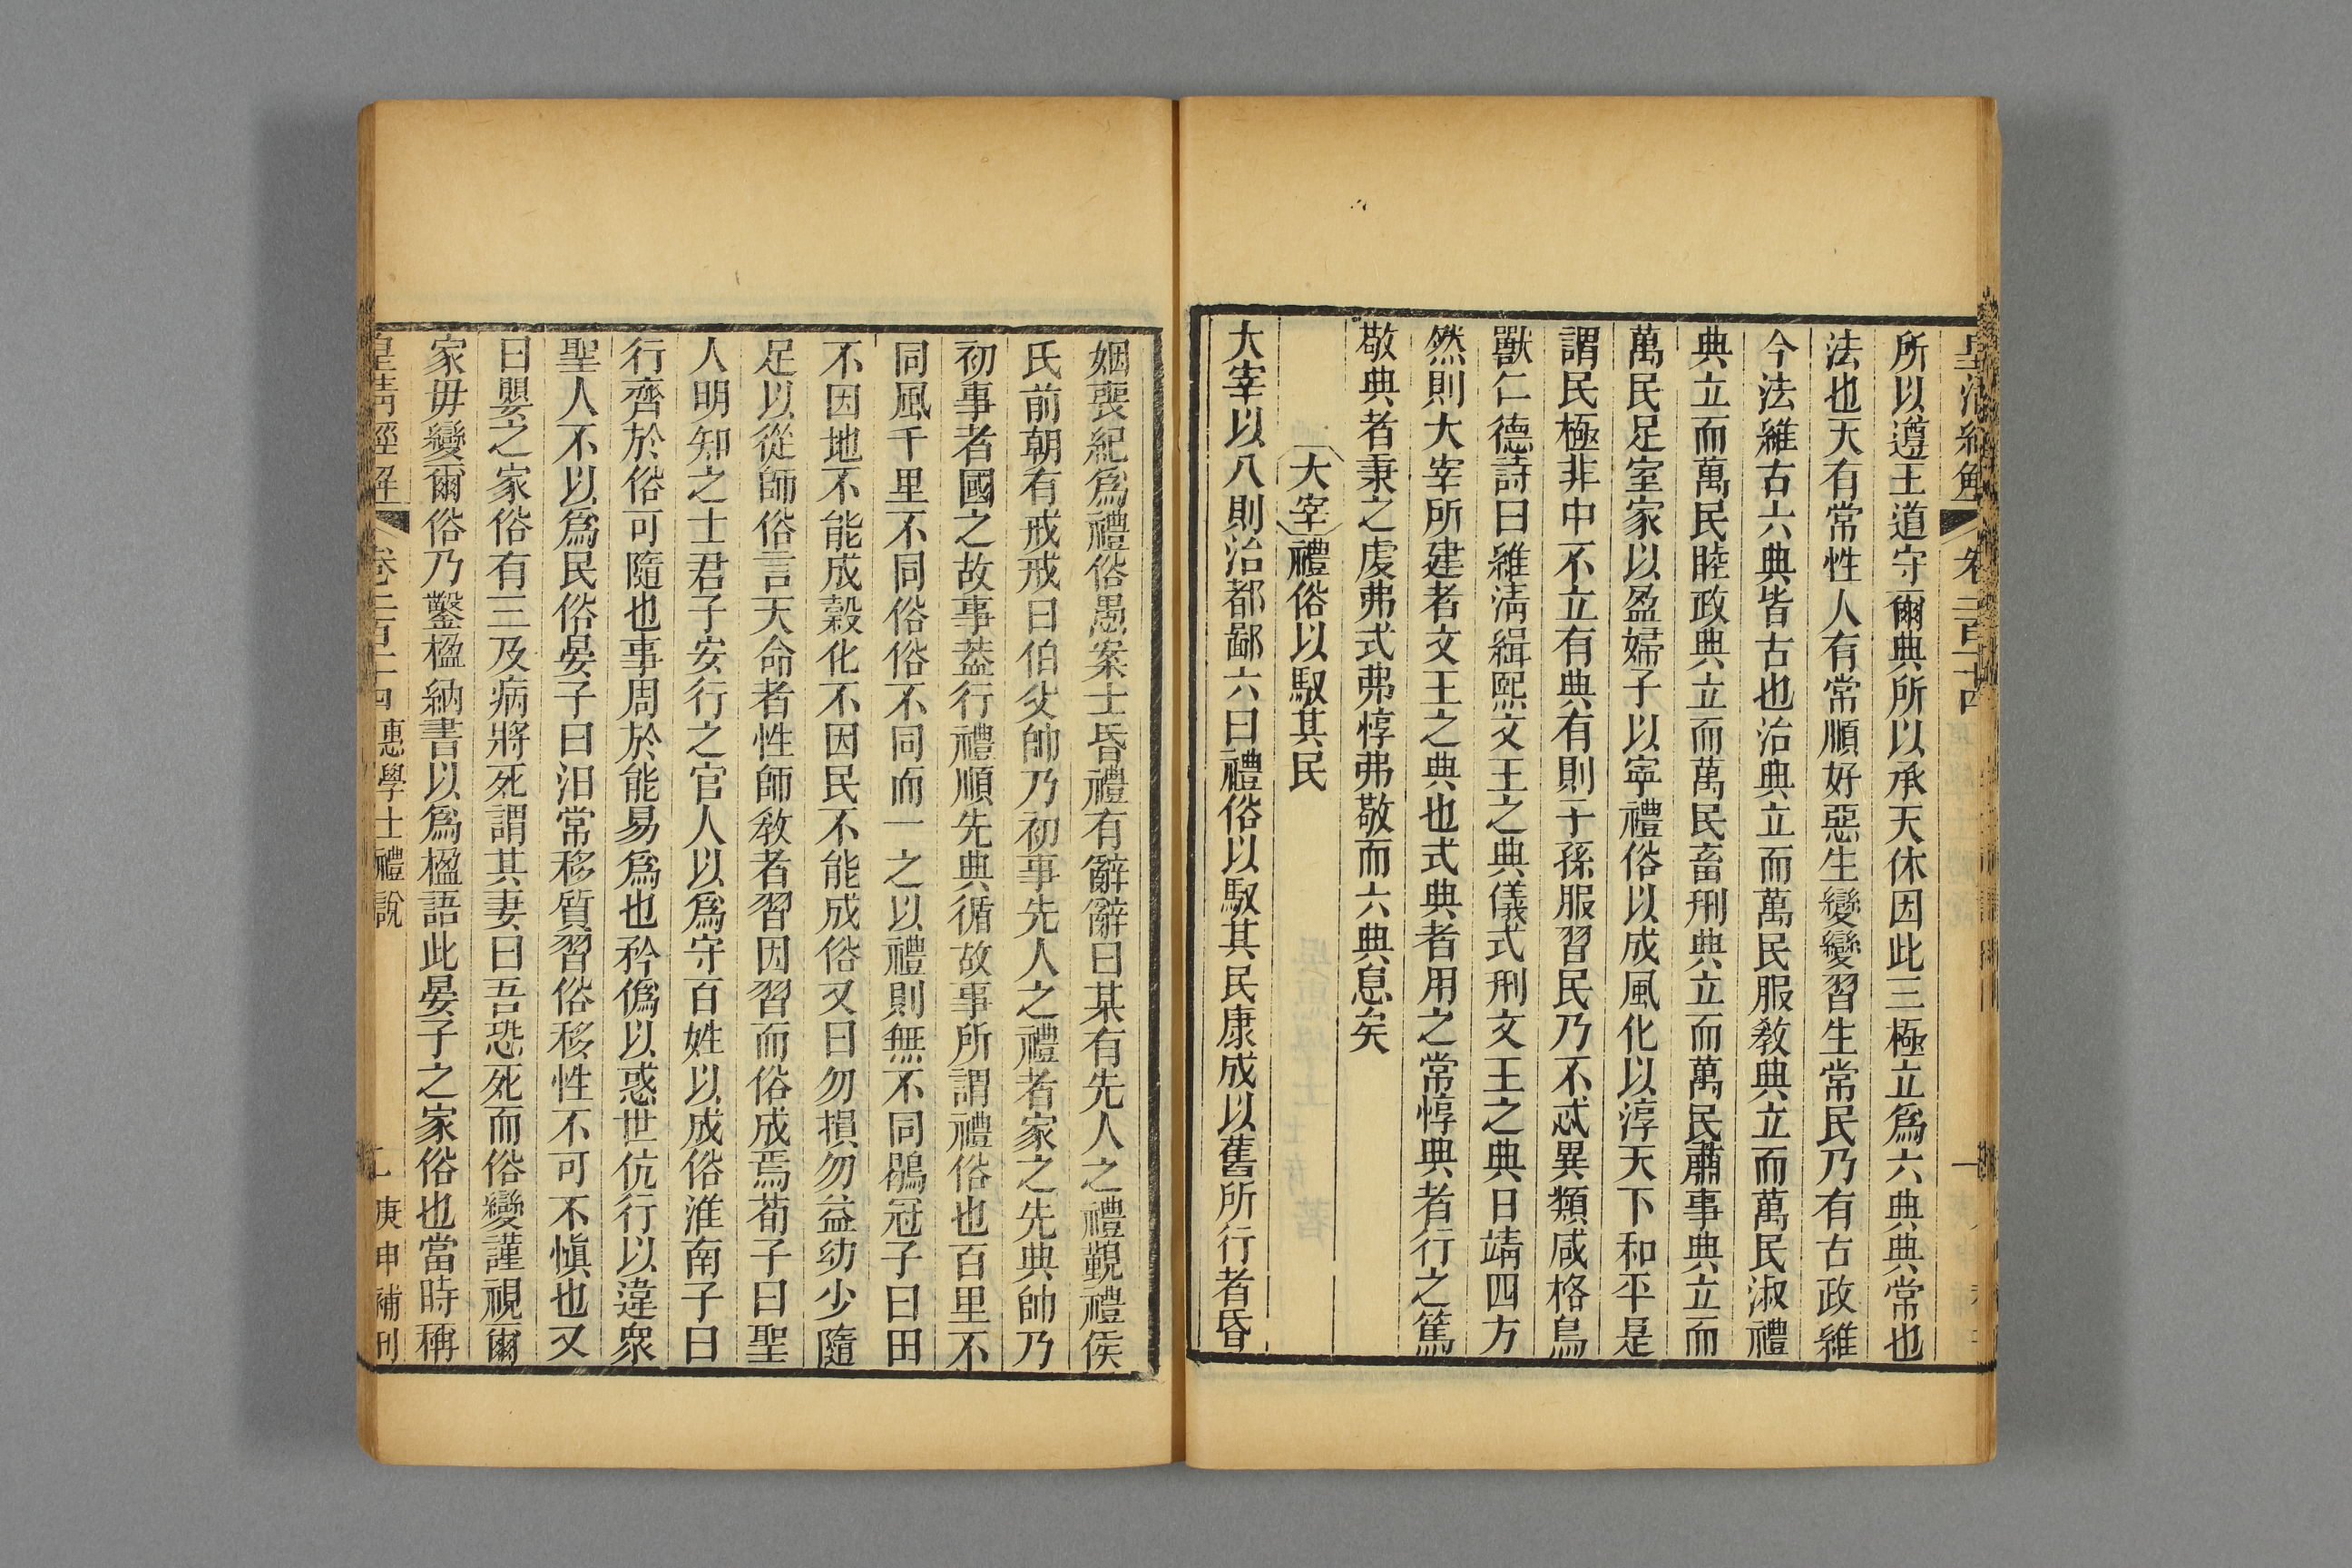 皇清經解 卷二百十四
所以遵王道守爾典所以承天休因此三極立爲六典典常也
法也天有常性人有常順好惡生變變習生常民乃有古政維
今法維古六典皆古也治典立而萬民服敎典立而萬民淑禮
典立而萬民睦政典立而萬民畜刑典立而萬民肅事典立而
萬民足室家以盈婦子以寧禮俗以成風化以淳天下和平是
謂民極非中不立有典有則子孫服習民乃不忒異類咸格鳥
獸仁德詩曰維淸緝熙文王之典儀式刑文王之典日靖四方
然則大宰所建者文王之典也式典者用之常惇典者行之篤
敬典者秉之虔弗式弗惇弗敬而六典息矣
大宰禮俗以馭其民
大宰以八則治都鄙六曰禮俗以馭其民康成以舊所行者昏
姻喪紀爲禮俗愚案士昏禮有辭辭曰某有先人之禮覲禮侯
氏前朝有戒戒曰伯父帥乃初事先人之禮者家之先典帥乃
初事者國之故事葢行禮順先典循故事所謂禮俗也百里不
同風千里不同俗俗不同而一之以禮則無不同鶡冠子曰田
不因地不能成穀化不因民不能成俗又曰勿損勿益幼少隨
足以從師俗言天命者性師敎者習因習而俗成焉荀子曰聖
人明知之士君子安行之官人以爲守百姓以成俗淮南子曰
行齊於俗可隨也事周於能易爲也矜僞以惑世伉行以違衆
聖人不以爲民俗晏子曰汨常移質習俗移性不可不愼也又
曰嬰之家俗有三及病將死謂其妻曰吾恐死而俗變謹視爾
家毋變爾俗乃鑿楹納書以爲楹語此晏子之家俗也當時稱
皇淸經解 卷二百十四 惠學士禮說 二 庚申補刊